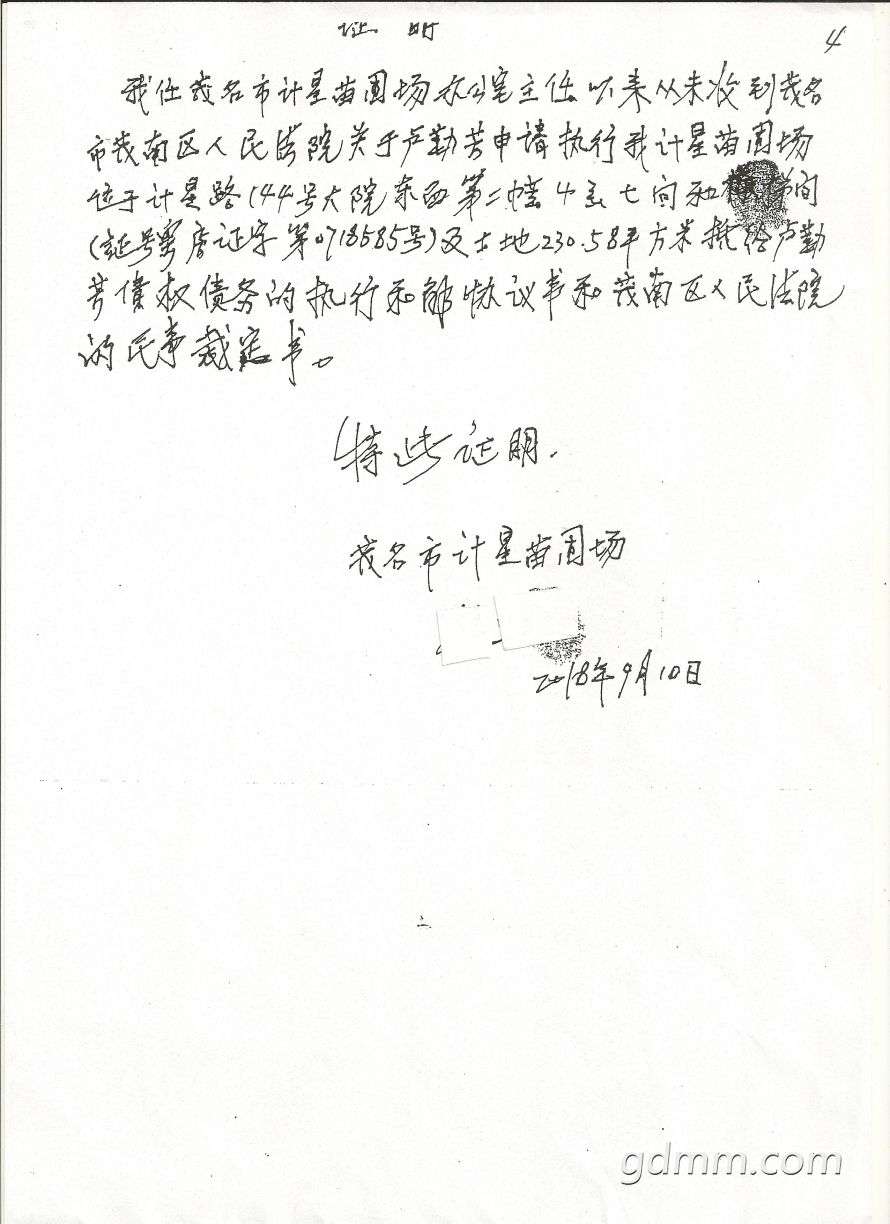 证明
4
我任茂名市计星苗圃场办公室主任以来从未收到茂名
市茂南区人民法院关于卢勤芳申请执行我计星苗圃场
位于计星路144号大院东面第二幢 七间和梯间
(证号粤房证字第0718585号)及土地230.58平方米抵给卢勤
芳债权债务的执行和解协议书和茂南区人民法院
的民事裁定书。
特此证明.
茂名市计星苗圃场
2018年9月10日
gdmm.com